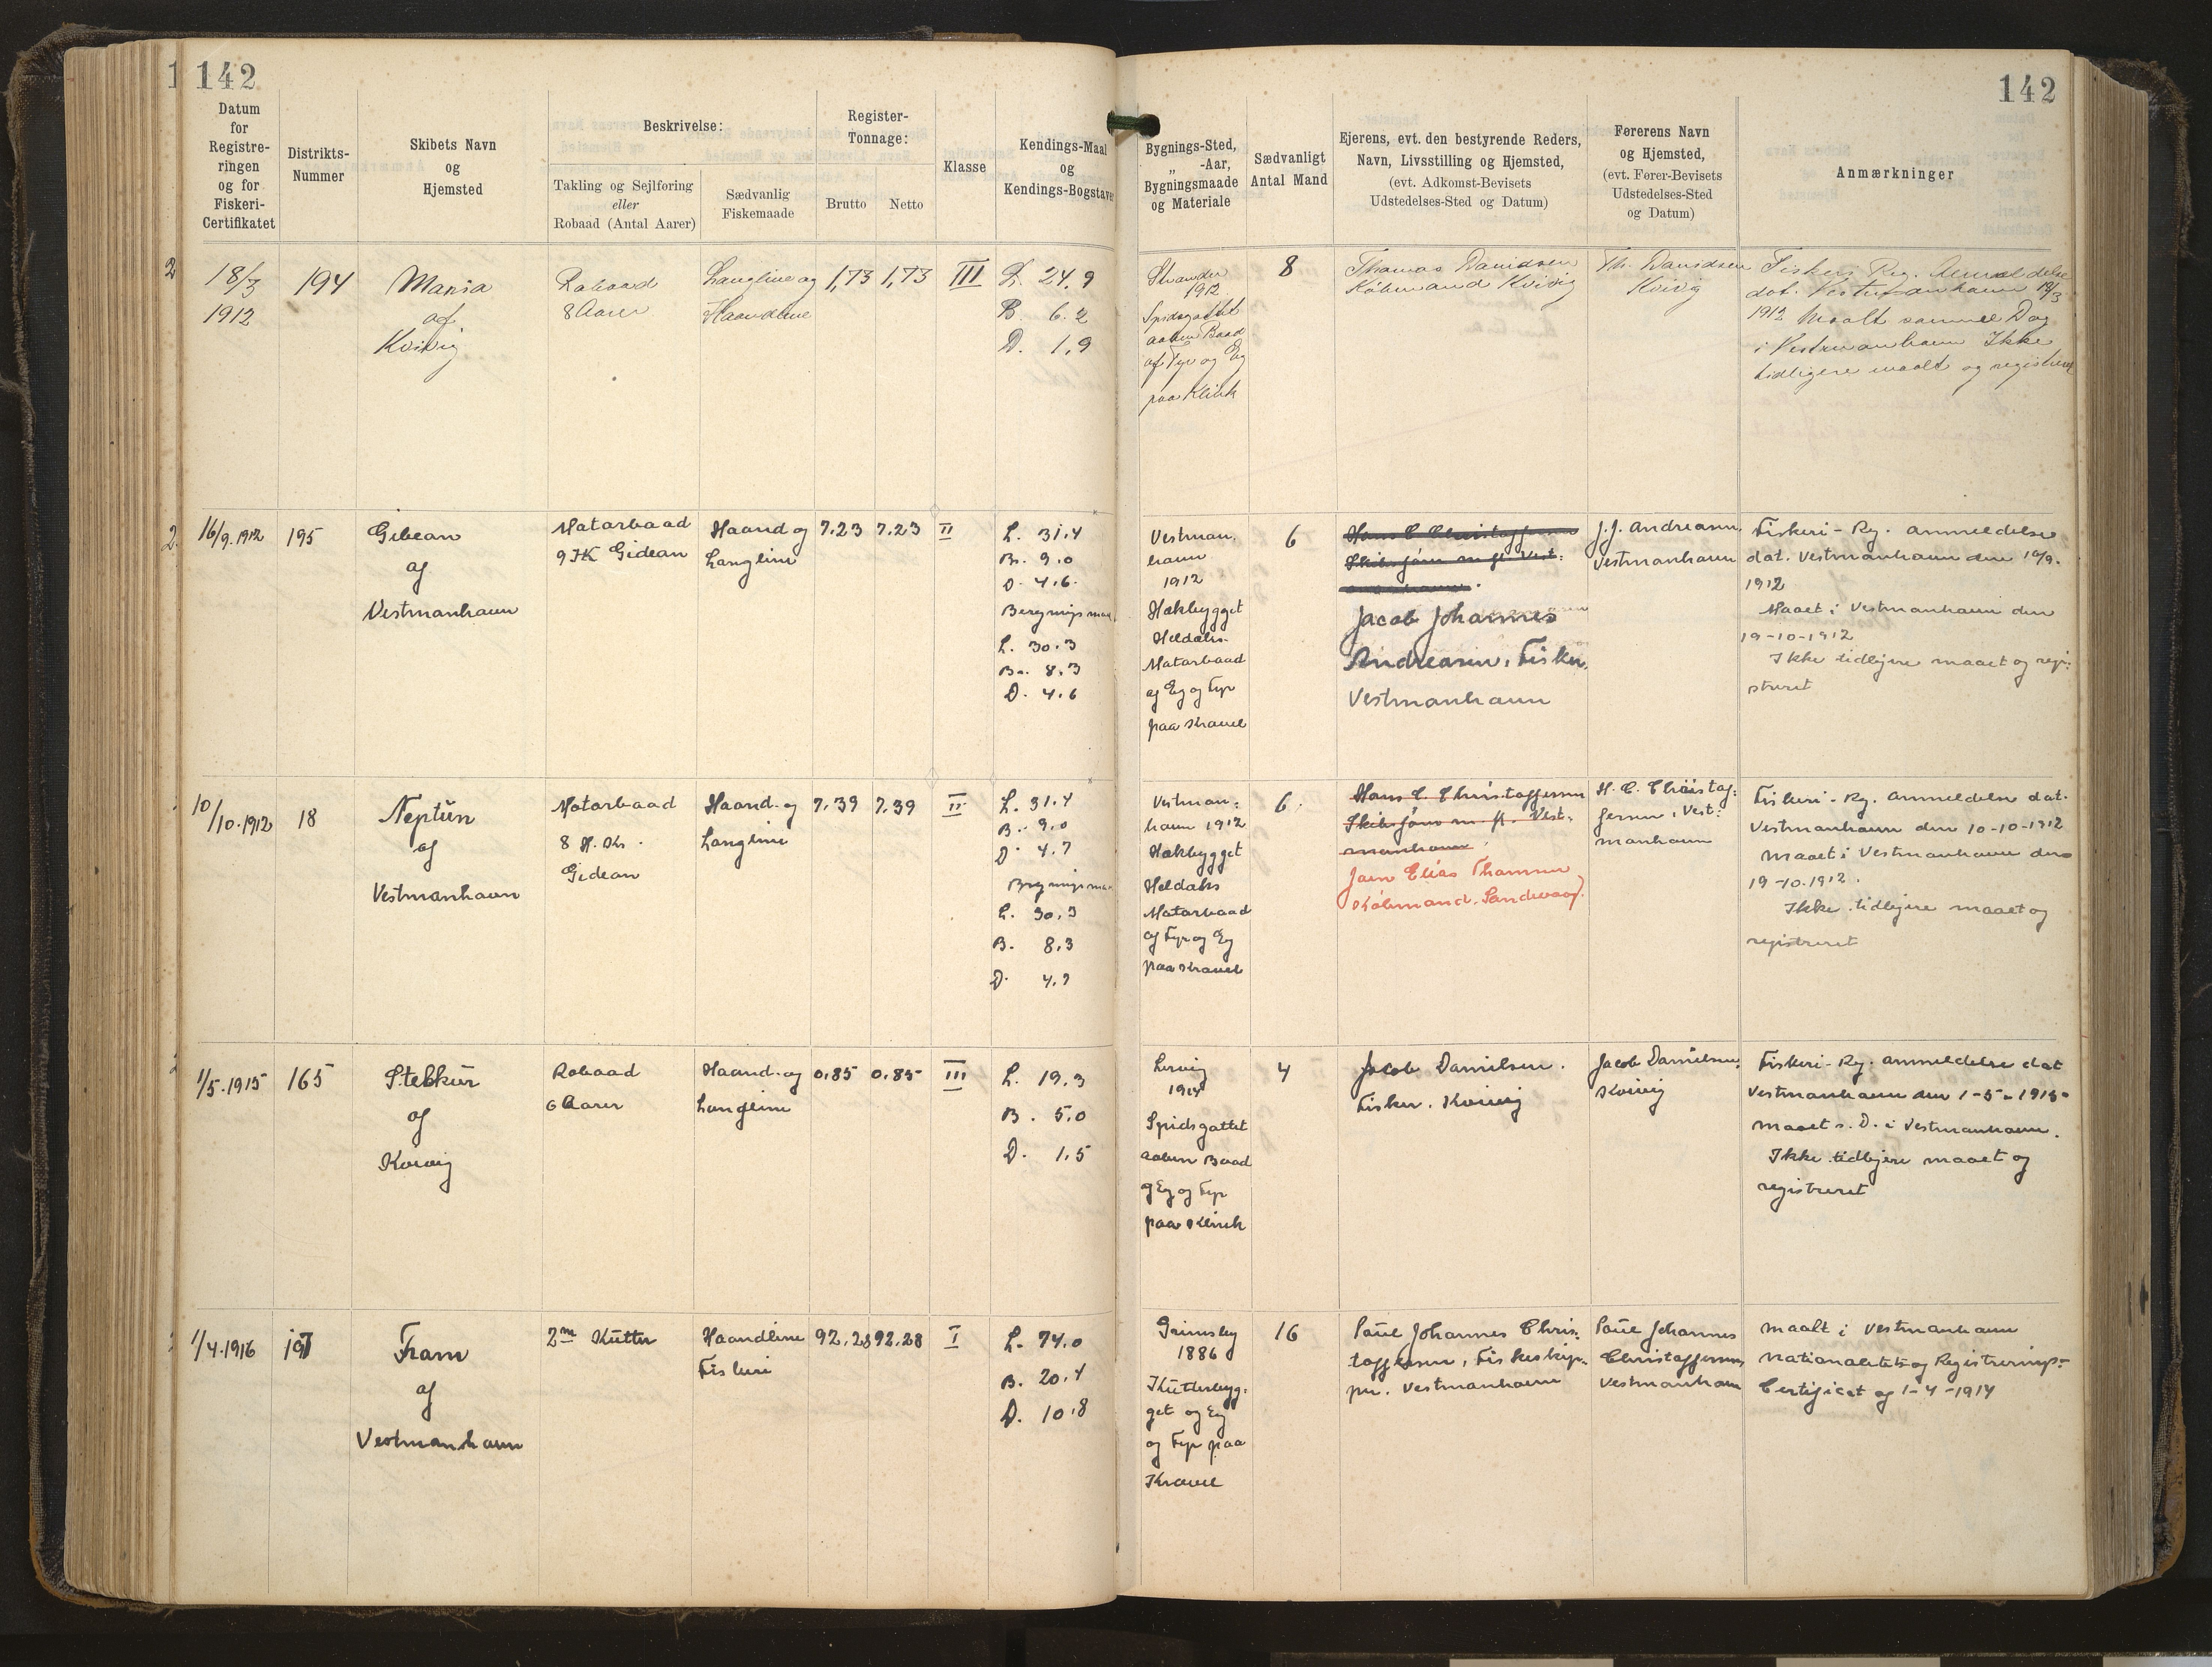 142
142
Datum
for
Registre-
ringen
og for
Fiskeri-
Certifikatet
Distrikts-
Nummer
Skibets Navn
og
Hjemsted
Beskrivelse:
Takling og Sejlføring
eller
Robaad (Antal Aarer)
Sædvanlig
Fiskemaade
Register-
Tonnage:
Brutto
Netto
Klasse
Kendings-Maal
og
Kendings-Bogstaver
Bygnings-Sted,
„ -Aar,
Bygningsmaade
og Materiale
Sædvanligt
Antal Mand
Ejerens, evt. den bestyrende Reders,
Navn, Livsstilling og Hjemsted,
(evt. Adkomst-Bevisets
Udstedelses-Sted og Datum)
Førerens Navn
og Hjemsted,
(evt. Fører-Bevisets
Udstedelses-Sted
og Datum)
Anmærkninger
18/3
1912
194
Maria
af
Kvivig
Robaad
8 Aarer
Langline og
Haandline
1,73
1,73
III
L. 24.9
B. 6.2
D. 1,9
Strander
1912
Spidsgattet
aaben Baad
af Fyr og Eg
paa Klink
8
Thomas Danidsen
Købmand Kvivig
Th. Danidsen
Kvivig
Fiskeri Reg. Anmeldelse
dat. Vestmanhavn 18/3
1912 Maalt samme Dag
i Vestmanhavn Ikke
tidligere maalt og registreret
16/9.1912
195
Gibeon
af
Vestmanhavn
Motorbaad
9 HK Gidean
Haand og
Langline
7.23
7.23
II
L. 31.4
Br. 9.0
D. 4.6.
L. 30.3
Br. 8.3
D. 4.6
Vestman.
havn
1912
Hækbygget
Heldæks-
Motorbaad
af Eg og Fyr
paa Kravel
6
Hans C Christoffersen
Skibsfører m fl. Vest:
manhavn.
Jacob Johannes
Andreasen, Fisker,
Vestmanhavn
J.J. Andreasen,
Vestmanhavn
Fiskeri-Reg. anmeldelse
dat. Vestmanhavn den 16/9.
1912
Maalt i Vestmanhavn den
19-10-1912
Ikke tidligere maalt og regi:
streret
10/10.1912
18
Neptun
af
Vestmanhavn
Motorbaad
8 H. Kr.
Gidean
Haand- og
Langline
7.39
7.39
II
L. 31.4
B. 9.0
D. 4.7
L. 30.3
B. 8.3
D. 4.7
Vestman:
havn 1912
Hækbygget
Heldæks
Motorbaad
af Fyr og Eg
paa Kravel
6.
Hans C. Christoffersen
Skibsfører m. fl. Vest:
manhavn.
Joen Elias Thomsen
Købmand. Sandvaag.
H. C. Christof:
fersen, Vest:
manhavn
Fiskeri-Reg. anmeldelse dat.
Vestmanhavn den 10-10-1912
maalt i Vestmanhavn den
19-10.1912.
Ikke tidligere maalt og
registreret
1/5.1915
165
Stekkur
af
Kvivig
Robaad
6 Aarer
Haand- og
Langline
0.85
0.85
III
L. 19.3
B. 5.0
D. 1.5
Lervig
1914
Spidsgattet
aaben Baad
af Eg og Fyr
paa Klink
4
Jacob Danielsen.
Fisker. Kvivig
Jacob Danielsen,
Kvivig
Fiskeri-Reg. anmeldelse dat
Vestmanhavn den 1-5-1915-
maalt s. D. i Vestmanhavn.
Ikke tidligere maalt og
registreret
1/4.1916
197
Fram
af
Vestmanhavn
2m Kutter
Haandline
Fiskeri
92.28
92.28
I
L. 74.0
B. 20.4
D. 10.8
Grimsby
1886
Kutterbyg-
get af Eg
og Fyr paa
Kravel
16
Poul Johannes Chris:
toffersen, Fiskeskip-
per. Vestmanhavn
Poul Johannes
Christoffersen,
Vestmanhavn
maalt i Vestmanhavn
Nationalitets og Registrerings-
Certificat af 1-4-1914